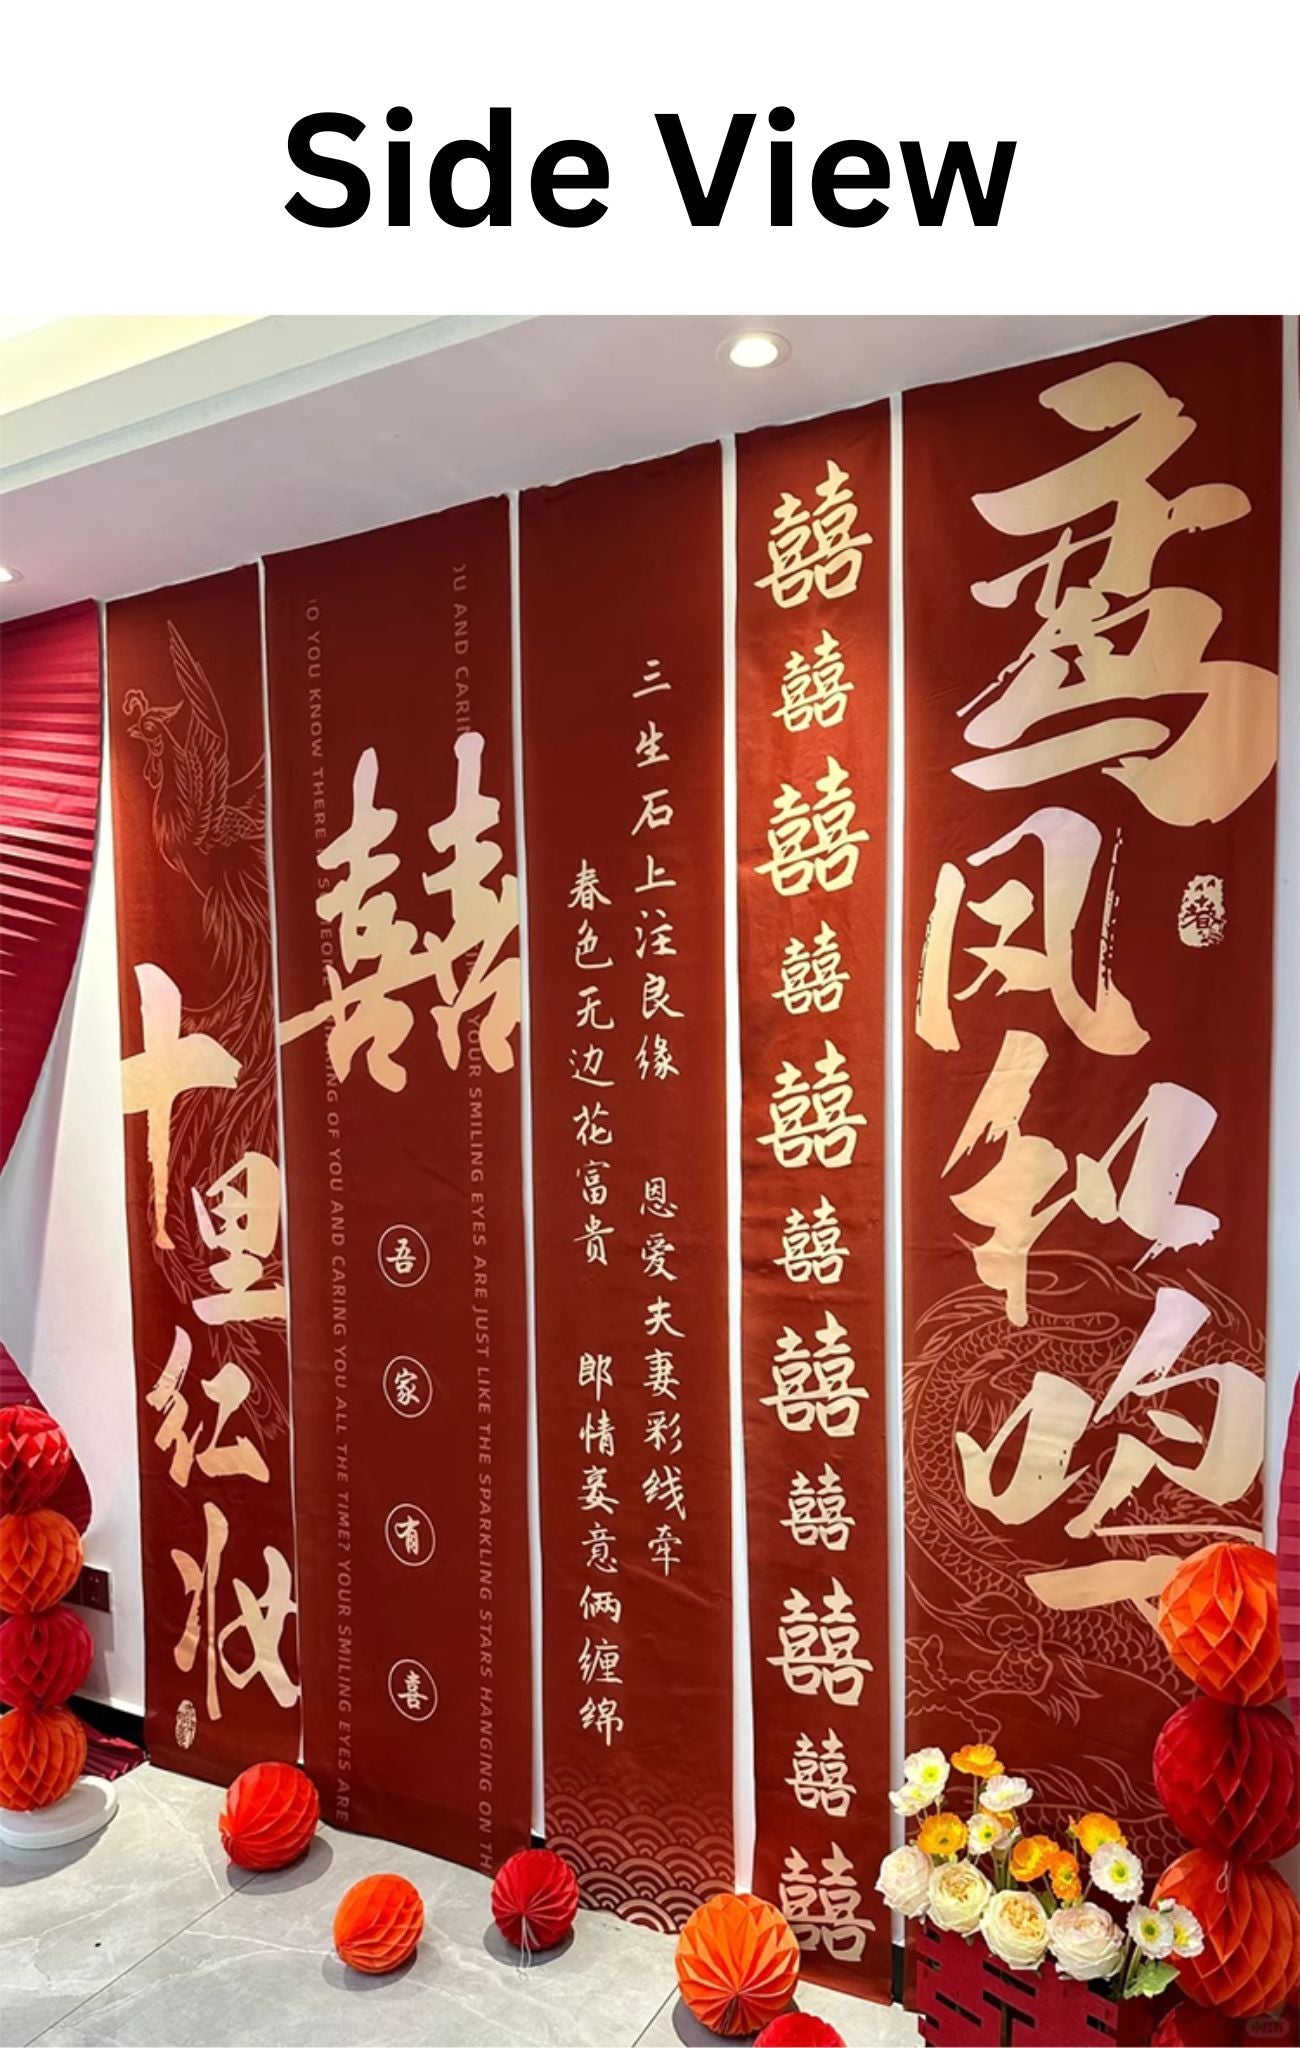 Side View
鸾凤和鸣
囍
囍
囍
囍
囍
囍
囍
囍
囍
囍
囍
三生石上注良缘 恩爱夫妻彩线牵
春色无边花富贵 郎情妾意俩缠绵
囍
吾家有喜
OU AND CARIN
YOUR SMILING EYES ARE JUST LIKE THE SPARKLING STARS HANGING ON TH
O YOU KNOW THERE
KING OF YOU AND CARING YOU ALL THE TIME? YOUR SMILING EYES ARE
十里红妆
小红书